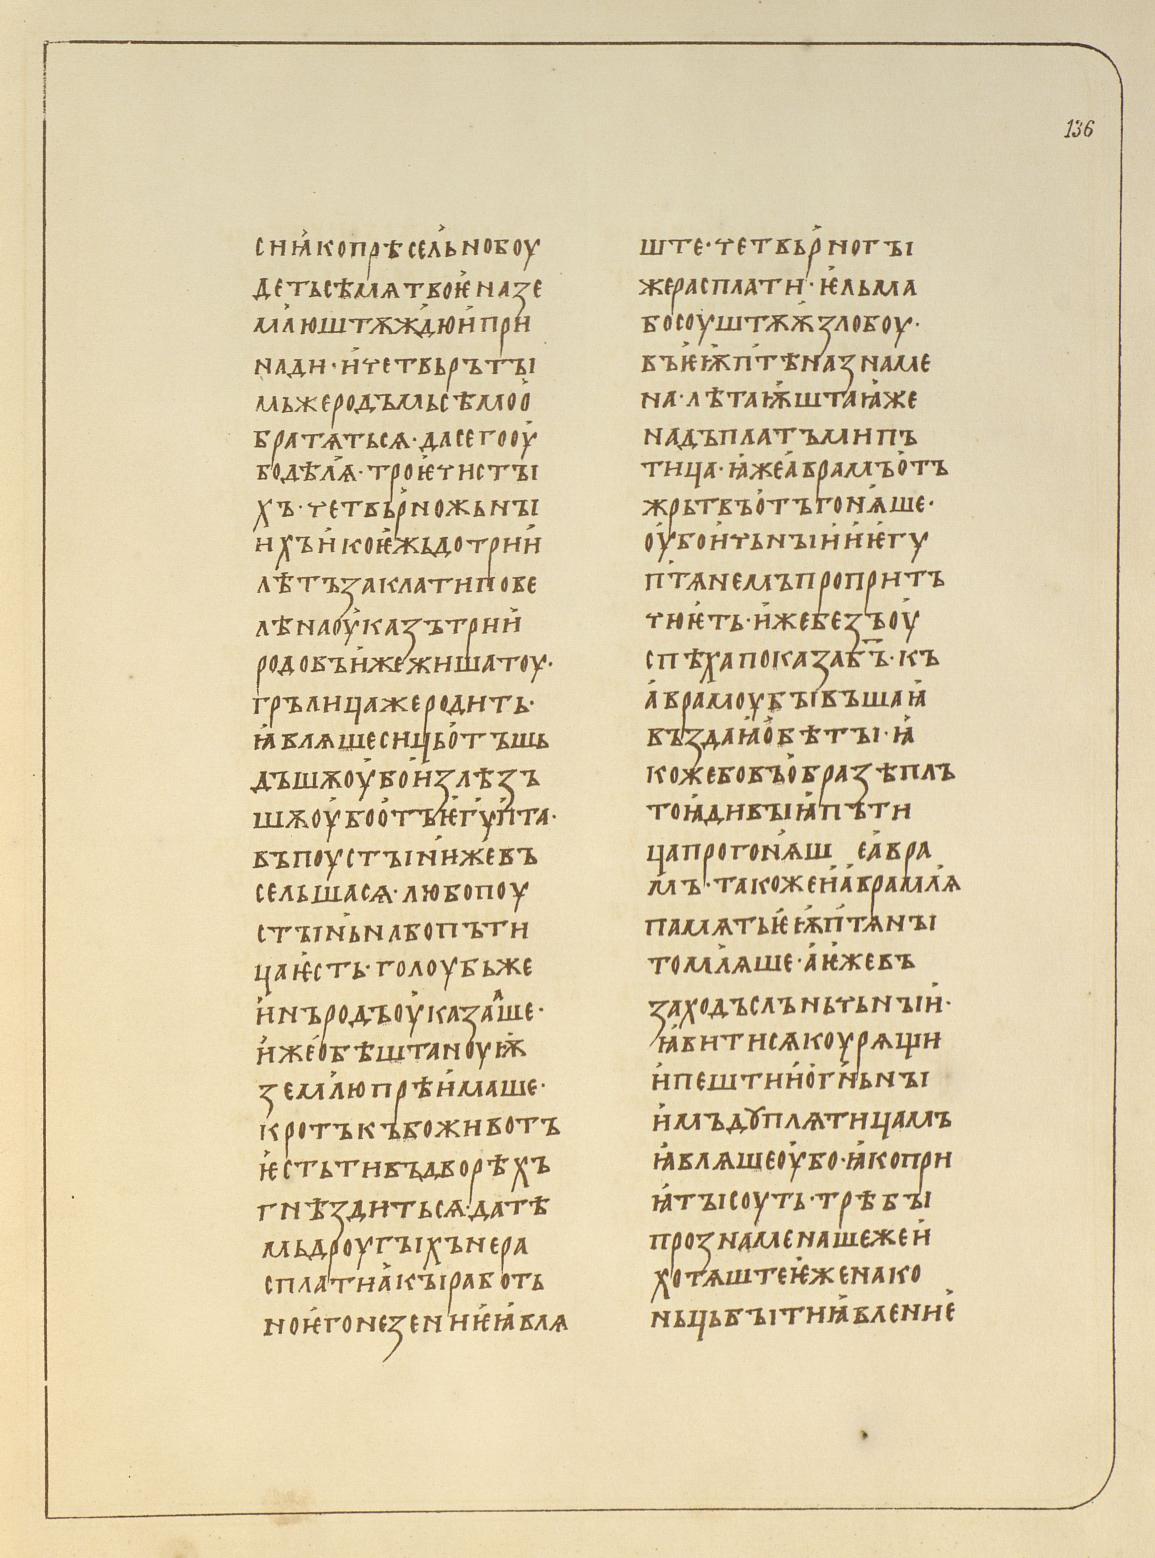 136
сиꙗкопрѣсельнобоу
детьсѣмѧтвоѥназе
млюштѫждюипри
нади·ичетвьрътꙑ
мьжеродъмьсѣмоо
братѧтьсѧ·дасегооу
бодѣлꙗ·троѥчистꙑ
хъ·четвьрножьнꙑ
ихъикоѥжьдотрии
лѣтъзаклатипове
лѣнаоуказътрии
родобъижежишатоу·
грълицажеродить·
ꙗвлꙗшесицьотъшь
дъшѫоубоизлѣзъ
шѫоубоотъѥгүпта·
въпоустꙑниижевъ
сельшасѧ·любопоу
стꙑньнабопъти
цаѥсть·голоубьже
инъродъоуказааше·
ижеобѣштаноуѭ
землюпрѣимаше·
кротъкъбоживотъ
ѥстьтивъдворѣхъ
гнѣздитьсѧ·датѣ
мьдроугꙑхънера
сплатиакꙑработь
ноѥгонезениѥꙗвлѧ
ште·четвьрногꙑ
жерасплати·ѥльма
босоуштѫѫзлобоу·
въѥѭптѣназнаме
на·лѣтаѭштаꙗже
надъплатъмипъ
тица·ꙗжеаврамъотъ
жрьтвъотъгонѧше·
оубоичьнꙑииѥгу
птѧнемъпропритъ
чюѥть·ижебезъоу
спѣхапоказабъ·къ
аврамоубꙑвъшаꙗ
въздаꙗобѣтꙑ·ꙗ
кожебовъобразѣплъ
тоꙗдивꙑꙗпъти
цапрогонꙗш еавра
мъ·такожеиаврамлѧ
памѧтьѥѭптѧнꙑ
томлꙗше·аѥжевъ
заходъслъньчьнꙑи·
ꙗвитисѧкоурѧщи
ипештииогньнꙑ
имъдꙋплѧтицамъ
ꙗвлꙗшеоубо·ꙗкопри
ꙗтꙑсоуть·трѣбꙑ
прознаменашежеи
хотѧштеѥженако
ньцьбꙑтиꙗвление